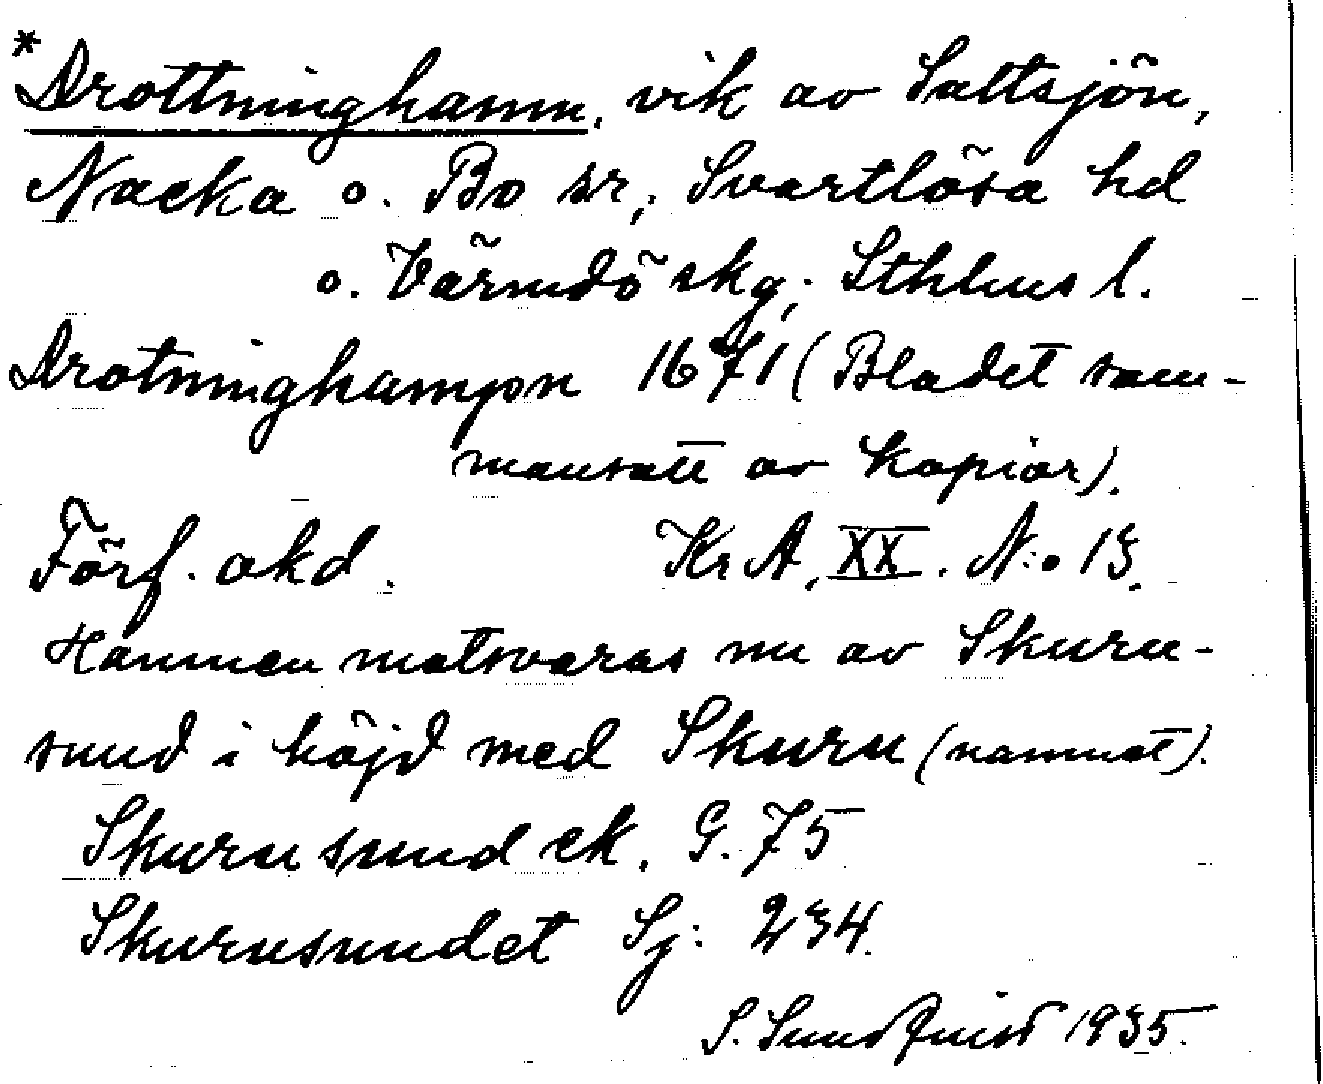 *Drottninghamn, vik av Saltsjön,
Nacka o. Bo sr, Svartlösa hd
o. Värmdö skg; Sthlms l.
Drotninghampn 1671 (Bladet sam-
mansatt av kopior).
Förf. okd. Kr A, XX. N:o 13.
Hamnen motsvaras nu av Skuru-
sund i höjd med Skuru (namnet).
Skurusund ek. G. 75
Skurusundet Sj: 234.
S. Sundquist 1935.